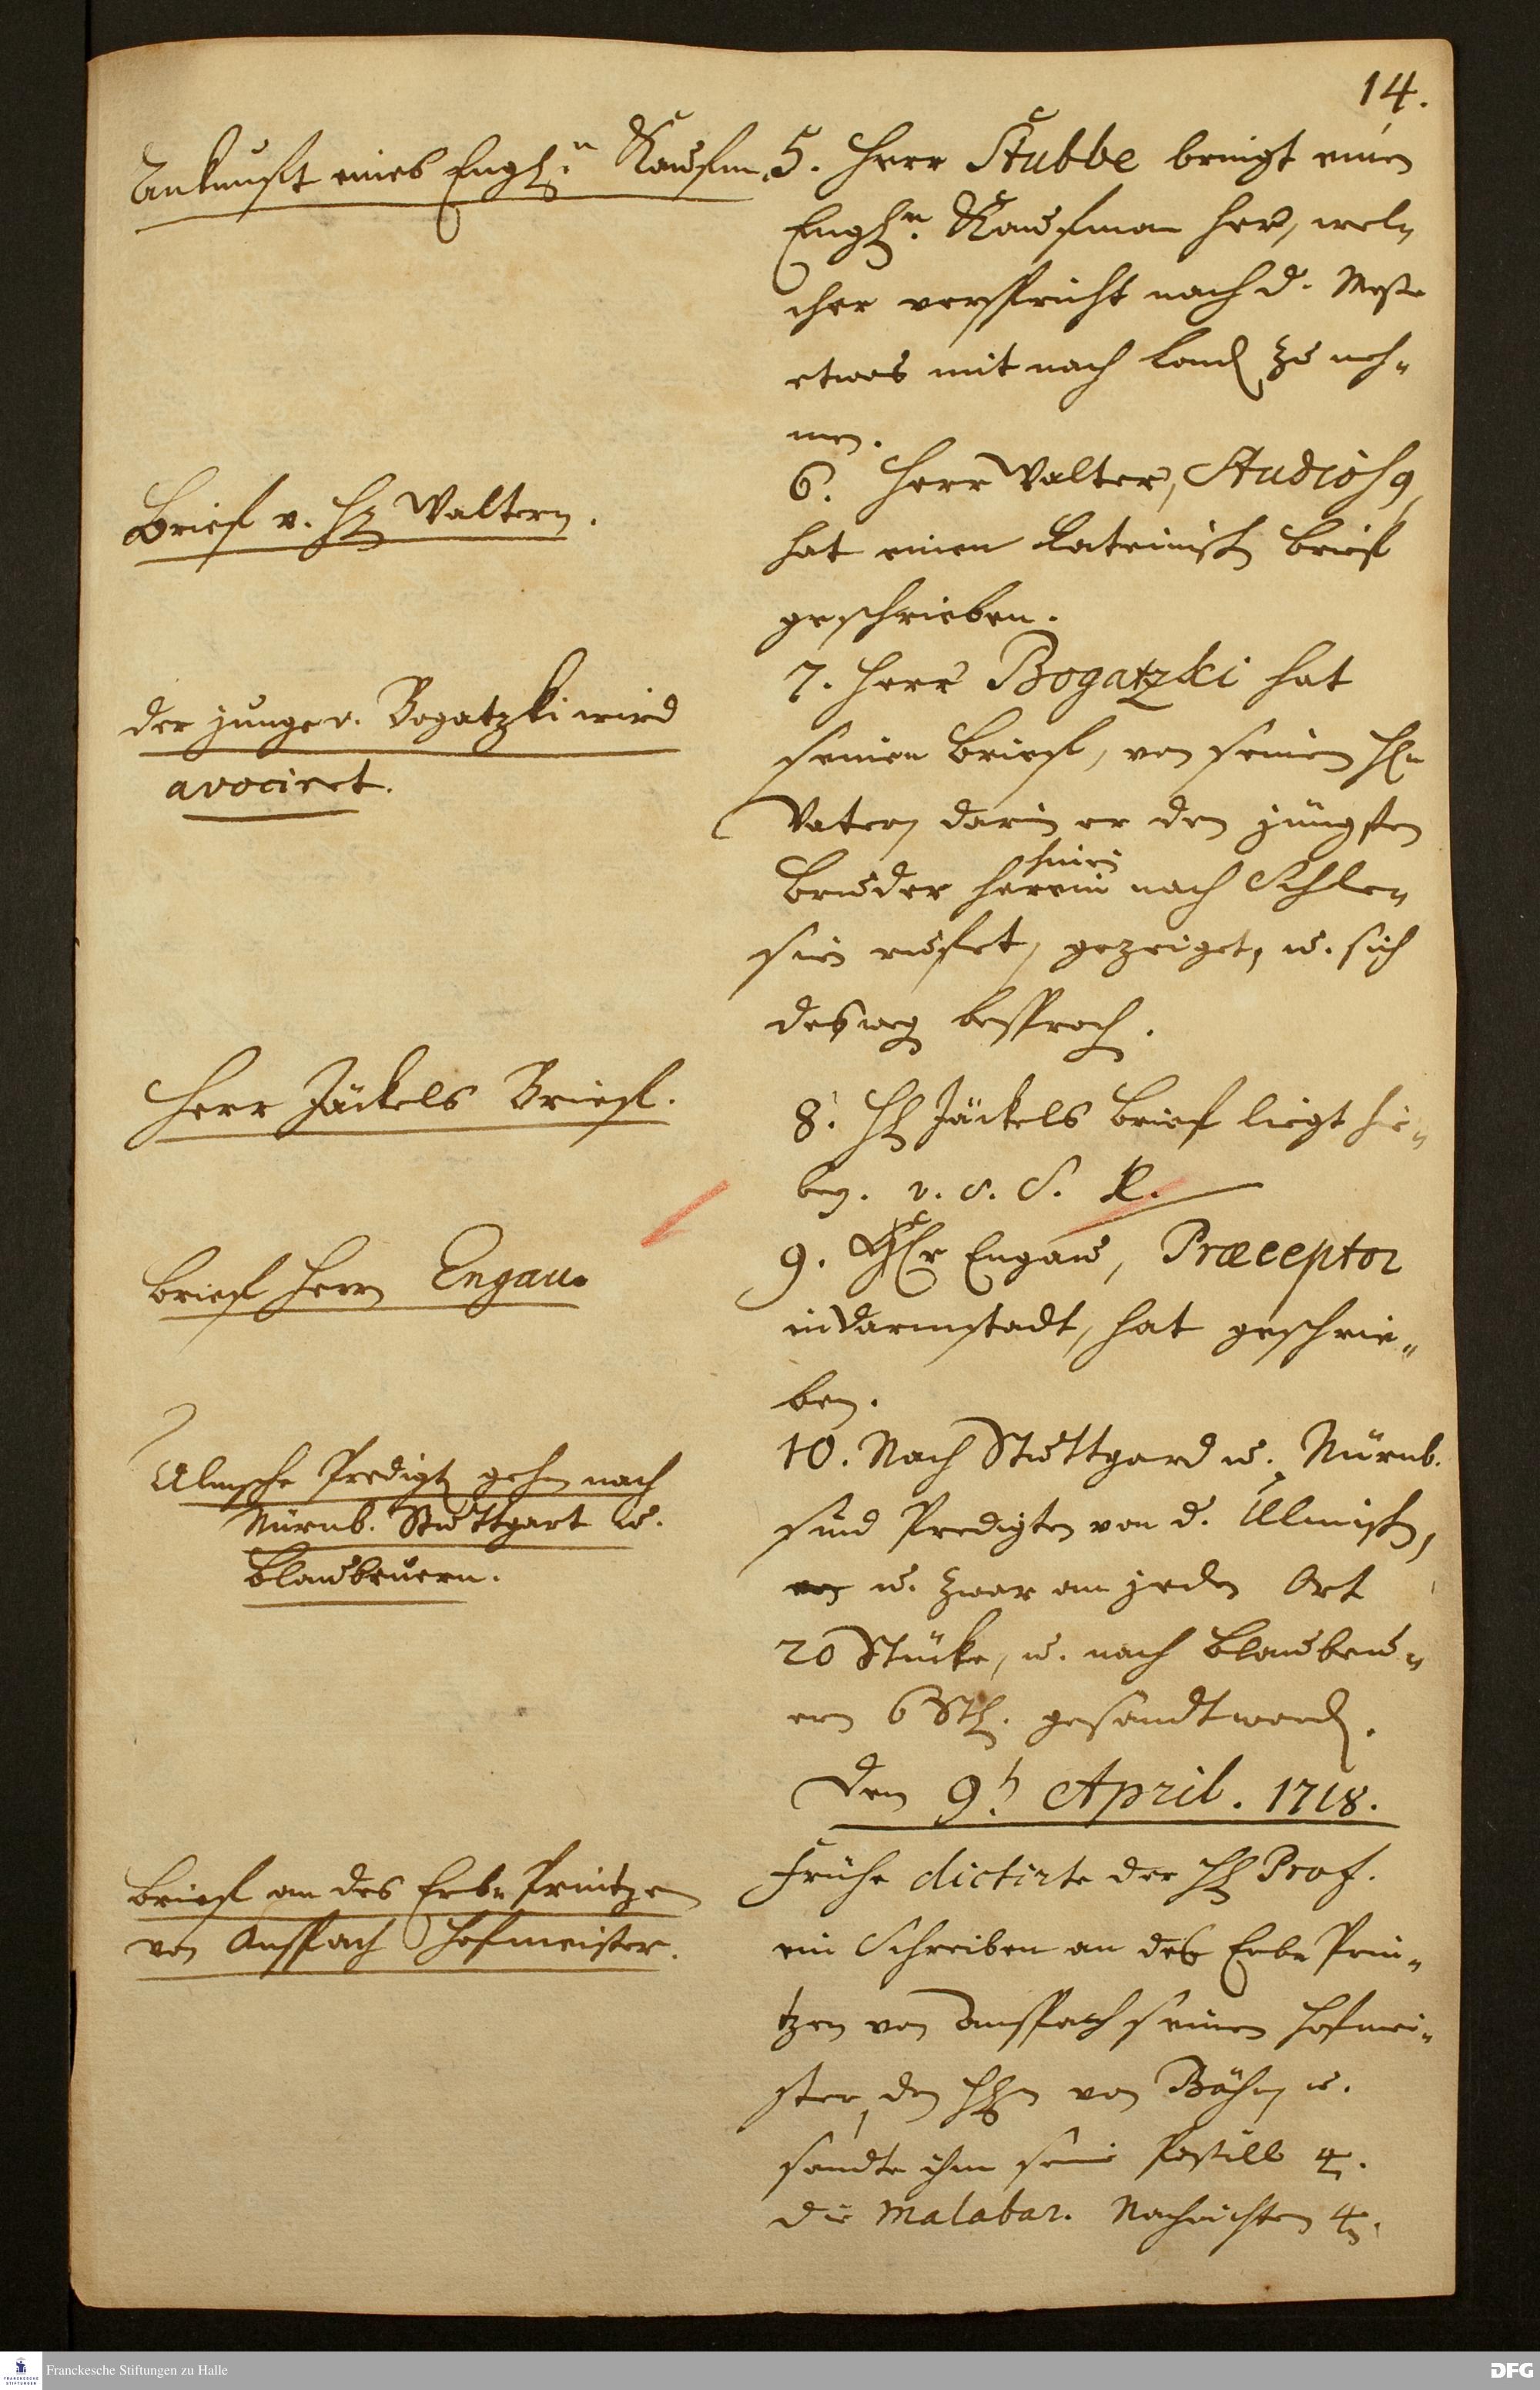 14.
Ankunfft eines Engl.n Kaufm.
5. Herr Stubbe bringt einen
Engl.n Kaufman her, wel-
cher verspricht nach d. Messe
etwas mit nach Lond zu neh-
men.
Brief v. H Waltern.
6. Herr Walter, Studiosq,
hat einen Lateinisch brief
geschrieben.
der junge v. Bogatzki wird
avociret.
7. Herr Bogatzki hat
seinen brieff, von seinem Hn
Vater, darin er den jüngsten
bruder herein hinein nach Schle-
sien ruffet, gezeiget, u. sich
desweg besproch.
Herr Jäckels Brieff.
8. H Jäckels brief liegt hie-
bey. v. s. S. R.
Brieff Herrn Engau.
9. Hr Engau, Præceptor
in Darmstadt, hat geschrie-
ben.
Ulmische Predigt gehen nach
Nürnb. Stuttgart u.
Blaubeuern.
10. Nach Stuttgard u. Nürnb.
sind Predigten von d. Ulmisch,
von u. zwar an jeden Ort
20 Stücke, u. nach Blaubeu-
ern 6 St. gesandt word.
Den 9t April. 1718.
Brieff an des Erb-Printzen
von Anspach Hofmeister.
Frühe dictirte der H Prof.
ein Schreiben an des Erb-Prin-
tzen von Anspach seinen Hofmei-
ster, den Hn von Böhn u.
sandte ihm seine Postill
die Malabar. Nachrichten
Franckesche Stiftungen zu Halle
FRANCKESCHE STIFTUNGEN
DFG